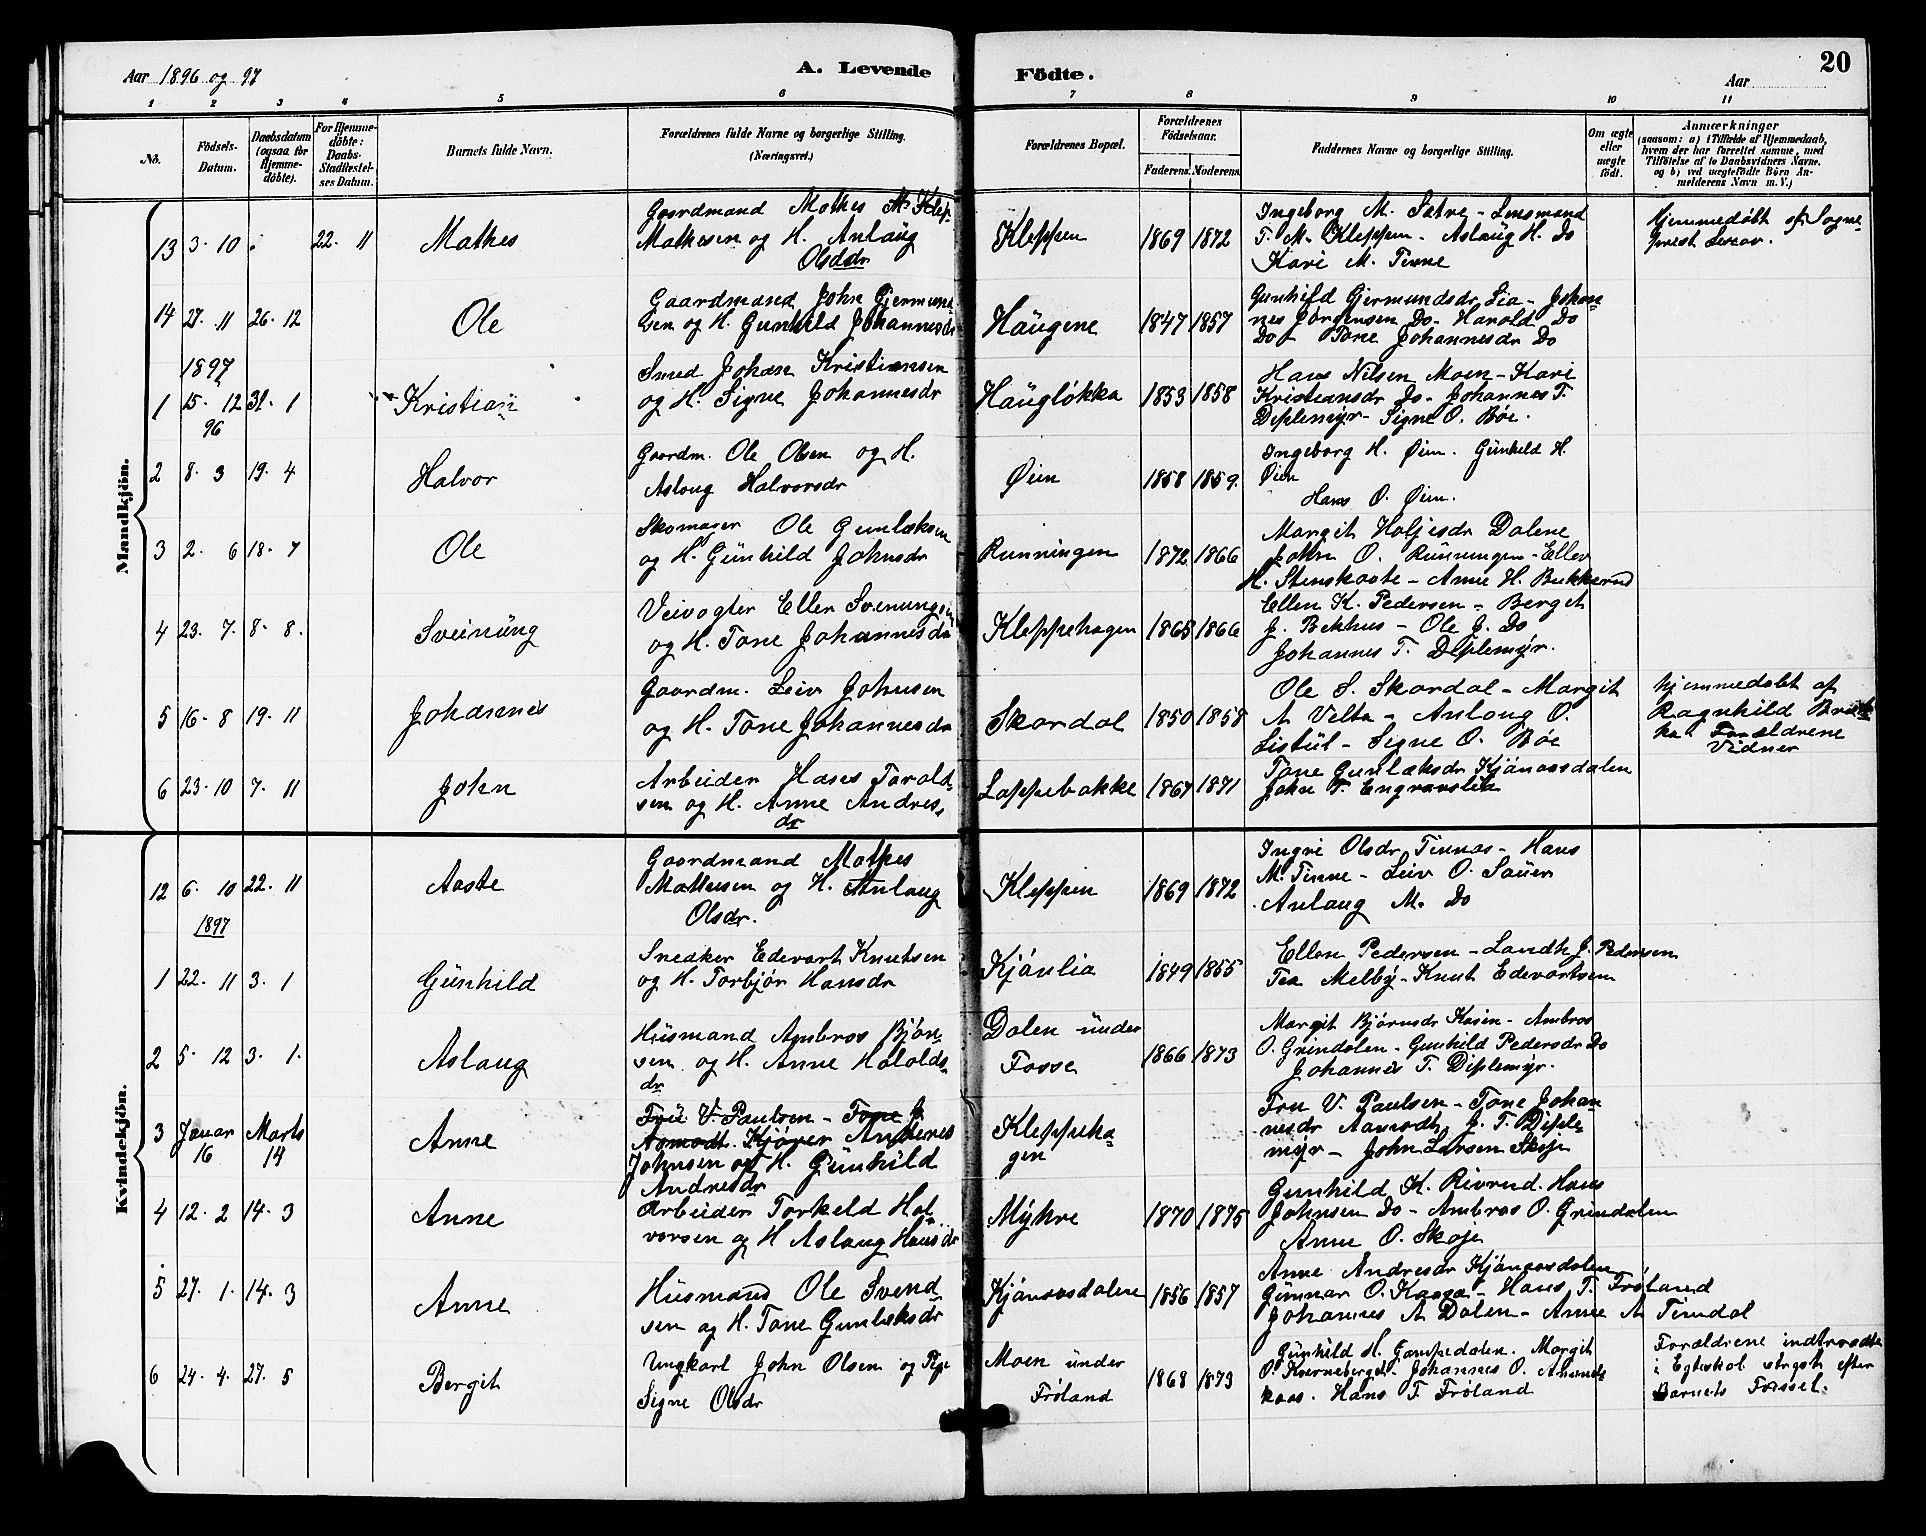 Aar 1896 og 97
A. Levende Födte.
Aar
20
1 2 3 4 5 6 7 8 9 10 11
No.
Födsels-Datum.
Daabsdatum (ogsaa for Hjemme-döbte).
For Hjemme-döbte: Daabs-Stadfæstel-ses Datum.
Barnets fulde Navn.
Forældrenes fulde Navne og borgerlige Stilling. (Næringsvei.)
Forældrenes Bopæl.
Forældrenes Födselsaar.
Faderens. Moderens.
Faddernes Navne og borgerlige Stilling.
Om ægte eller uægte födt.
Anmærkninger
(saasom: a) i Tilfælde af Hjemmedaab, hvem der har forrettet samme, med Tilföielse af to Daabsvidners Navne. og b) ved uægtefödte Börn An-melderens Navn m. V.)
Mandkjön.
13 3. 10 22. 11 Mathes
Gaardmand Mathes M. Klep.
Mathesen og H. Anlaug
Olsddr
Kleppen 1869 1872
Ingeborg M. Sætre - Lensmand
T. M. Kleppen - Aslaug H. Do
Kari M. Tinne
Hjemmedöbt af Sogne
prest
14 27. 11 26. 12 Ole
Gaardmand John Gjermund
sen og H. Gunhild Johannesdr
Haugene 1847 1857
Gunhild Gjermundsdr Lia - Johan
nes Jörgensen Do - Harold Do
Do - Tone Johannesdr Do
1897
1 15. 12 96 31. 1 Kristian
Smed Johan Kristiansen
og H. Signe Johannesdr
Haugløkka 1853 1858
Hans Nilsen Moen - Kari
Kristiansdr Do - Johannes T.
Diplemyr - Signe O. Bøe.
2 8. 3 19. 4 Halvor
Gaardm. Ole Olsen og H.
Aslaug Halvorsdr
Øien 1858 1859.
Ingeborg H. Øien. Gunhild H.
Øien
Hans O. Øien.
3 2. 6 18. 7 Ole
Skomager Ole Gunleksen
og H. Gunhild Johnsdr
Runningen 1872 1866
Margit Holjesdr Dalene
John O. Runningen - Ellev
H. Stenskaate - Anne H. Bukkerud
4 23. 7. 8. 8. Sveinung
Veivogter Ellev Svenungsen
og H. Tone Johannesdr
Kleppehagen 1865 1866
Ellen K. Pedersen - Berget
J. Bekhus - Ole J. Do
Johannes T. Diplemyr.
5 16. 8 19. 11 Johannes
Gaardm. Leiv Johnsen
og H. Tone Johannesdr
Skordal 1850 1858
Ole S. Skordal - Margit
A Velta - Anlaug O.
Listul - Signe O. Bøe
hjemmedøbt af
Ragnhild
Forældrene
Vidner
6 23. 10 7. 11 John
Arbeider Hans Torald
sen og H. Anne Andres
dr
Loppebakke 1867 1871
Tone Gunleksdr Kjønaasdalen
John T. Engravslia
Kvindekjön.
12 6. 10 22. 11 Aaste
Gaardmand Mathes
Mathesen og H. Anlaug
Olsdr.
Kleppen 1869 1872
Ingri Olsdr Tinnæs - Hans
M. Tinne - Leiv O. Sauer
Anlaug M. Do
1897
1 22. 11 3. 1 Gunhild
Snedker Edevart Knutsen
og H. Torbjør Hansdr
Kjønlia 1849 1855
Ellen Pedersen - Landh. J. Pedersen
Tea Melby - Knut Edevartsen
2 5. 12 3. 1. Aslaug
Husmand Ambros Bjørn
sen og H. Anne Halolds
dr
Dalen under
Fosse 1866 1873
Margit Bjørnsdr Kasin - Ambros
O. Grindalen - Gunhild Pedersdr Do
Johannes T. Diplemyr.
3 Januar 16 Marts 14 Anne
Frü V. Paulsen - Tone J.
Aamodt. Kjører Andreas
Johnsen og H. Gunhild
Andresdr
Kleppeha
gen
Fru V. Paulsen - Tone Johan
nesdr Aamodt, J. T. Diple
myr - John Larsen Skoje
4 12. 2 14. 3 Anne
Arbeider Torkeld Hal
vorsen og H Aslaug Hansdr
Myhre 1870 1875
Gunhild K. Rivrud. Hans
Johnsen Do - Ambros O. Grindalen
Anne O. Skoje
5 27. 1. 14. 3 Anne
Husmand Ole Svend
sen og H. Tone Gunleksdr
Kjønaasdalene 1856 1857
Anne Andresdr Kjønaasdalen
Gunnar O. Kaasa - Hans T. Frøland
Johannes A Dalen - Anne A Timdal
6 24. 4. 27. 5 Bergit
Ungkarl John Olsen og Pige
Signe Olsdr
Moen under
Frøland 1868 1873
Gunhild H. Gampedalen. Margit
O. Kverneberget. Johannes O. Amunds
kaas. Hans T. Frøland
Forældrene indtraadte
i Egteskab strax efter
Barnets Fødsel.